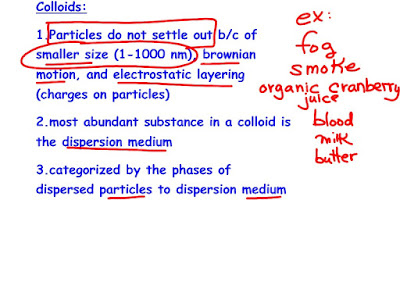 Colloids:
1.Particles do not settle out b/c of
smaller size (1-1000 nm), brownian
motion, and electrostatic layering
(charges on particles)
2.most abundant substance in a colloid is
the dispersion medium
3.categorized by the phases of
dispersed particles to dispersion medium
ex:
fog
smoke
organic cranberry
juice
blood
milk
butter